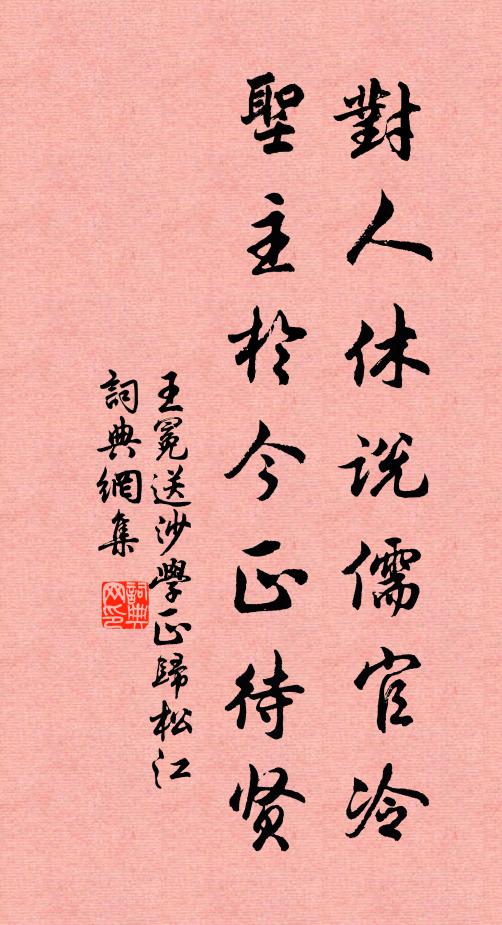 對人休説儒官冷
聖主於今正待贤
王冕送沙學正歸松江
詞典網集
詞典網印